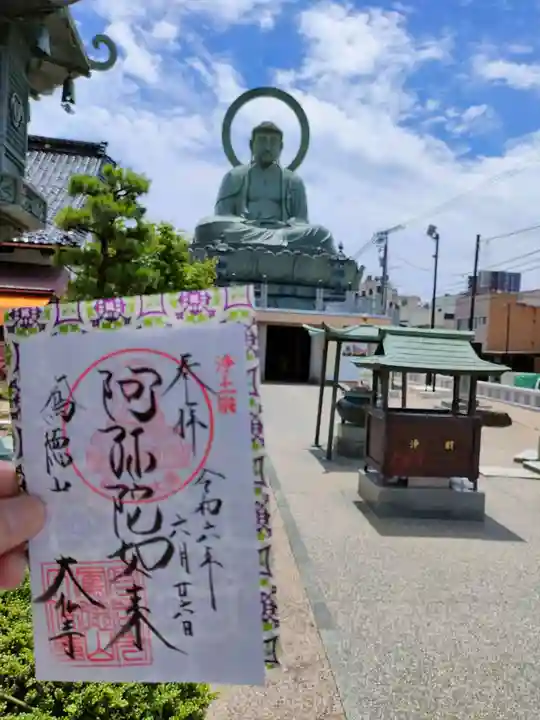 浄土宗
奉拝
令和六年
六月廿六日
阿弥陀如来
鳳徳山
大仏寺
浄財